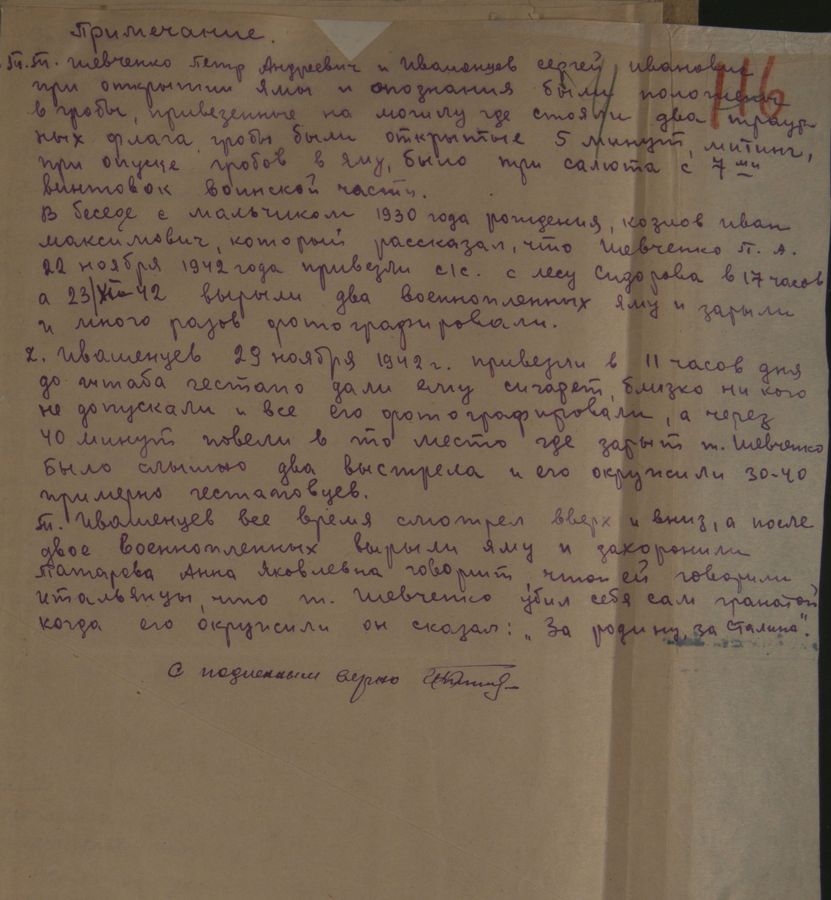 Примечание.
116
т.т. Шевченко Петр Андреевич и Ивашенцев Сергей Иванович
при открытии ямы и опознания были положены
в гробы, привезенные на могилу где стояли два траур
ных флага, гробы были открытые 5 минут, митинг,
при опуске гробов в яму, было три салюта с 7ми
винтовок воинской части.
В беседе с мальчиком 1930 года рождения, Козлов Иван
Максимович, который рассказал, что Шевченко П. А.
22 ноября 1942 года привезли с/с. с лесу Сидорова в 17 часов
а 23/XI-42 вырыли два военнопленных яму и зарыли
и много разов фотографировали.
2. Ивашенцев 29 ноября 1942 г. привезли в 11 часов дня
до штаба гестапо дали ему сигарет, близко ни кого
не допускали и все его фотографировали, а через
40 минут повели в то место где зарыт т. Шевченко
было слышно два выстрела и его окружили 30-40
примерно гестаповцев.
т. Ивашенцев все время смотрел вверх и вниз, а после
двое военнопленных вырыли яму и захоронили
Татарова Анна Яковлевна говорит, что ей говорили
итальянцы, что т. Шевченко убил себя сам гранатой
когда его окружили он сказал: „За родину, за Сталина".
С подленным верно